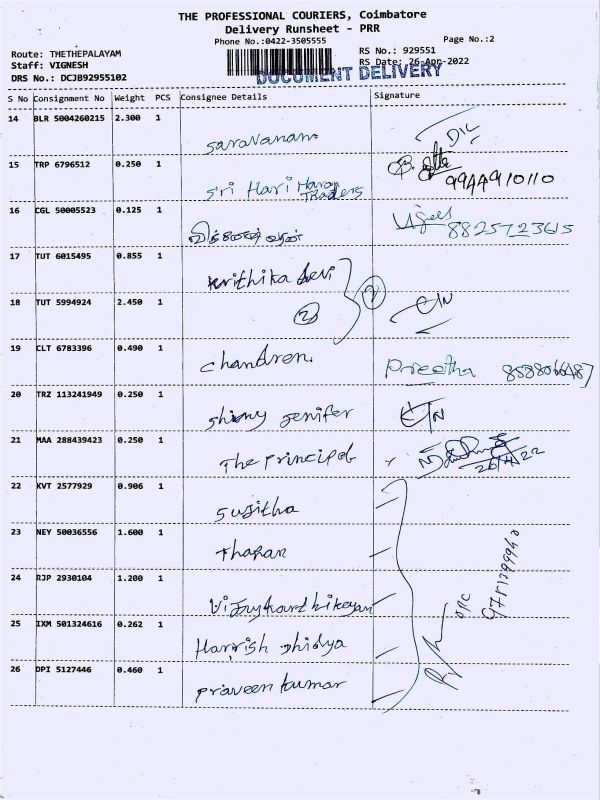 THE PROFESSIONAL COURIERS, Coimbatore
Delivery Runsheet - PRR
Phone No.:0422-3505555
Page No.:2
Route: THETHEPALAYAM
RS No.: 929551
Staff: VIGNESH
RS Date: 26-Apr-2022
DRS No.: DCJB92955102
DOCUMENT DELIVERY
S No Consignment No Weight PCS Consignee Details Signature
14 BLR 5004260215 2.300 1
Saravanan
15 TRP 6796512 0.250 1
Sri Hari Haran Traders
9944910110
16 CGL 50005523 0.125 1
8825723615
17 TUT 6015495 0.855 1
krithika devi
18 TUT 5994924 2.450 1
2
19 CLT 6783396 0.490 1
Chandren
Preetha
20 TRZ 113241949 0.250 1
Shiny Jenifer
21 MAA 288439423 0.250 1
The Principal
26/4/22
22 KVT 2577929 0.906 1
Sujitha
23 NEY 50036556 1.600 1
Tharan
24 RJP 2930104 1.200 1
Vijaykarthikeyan
25 IXM 501324616 0.262 1
Harrish
26 DPI 5127446 0.460 1
Praveen kumar